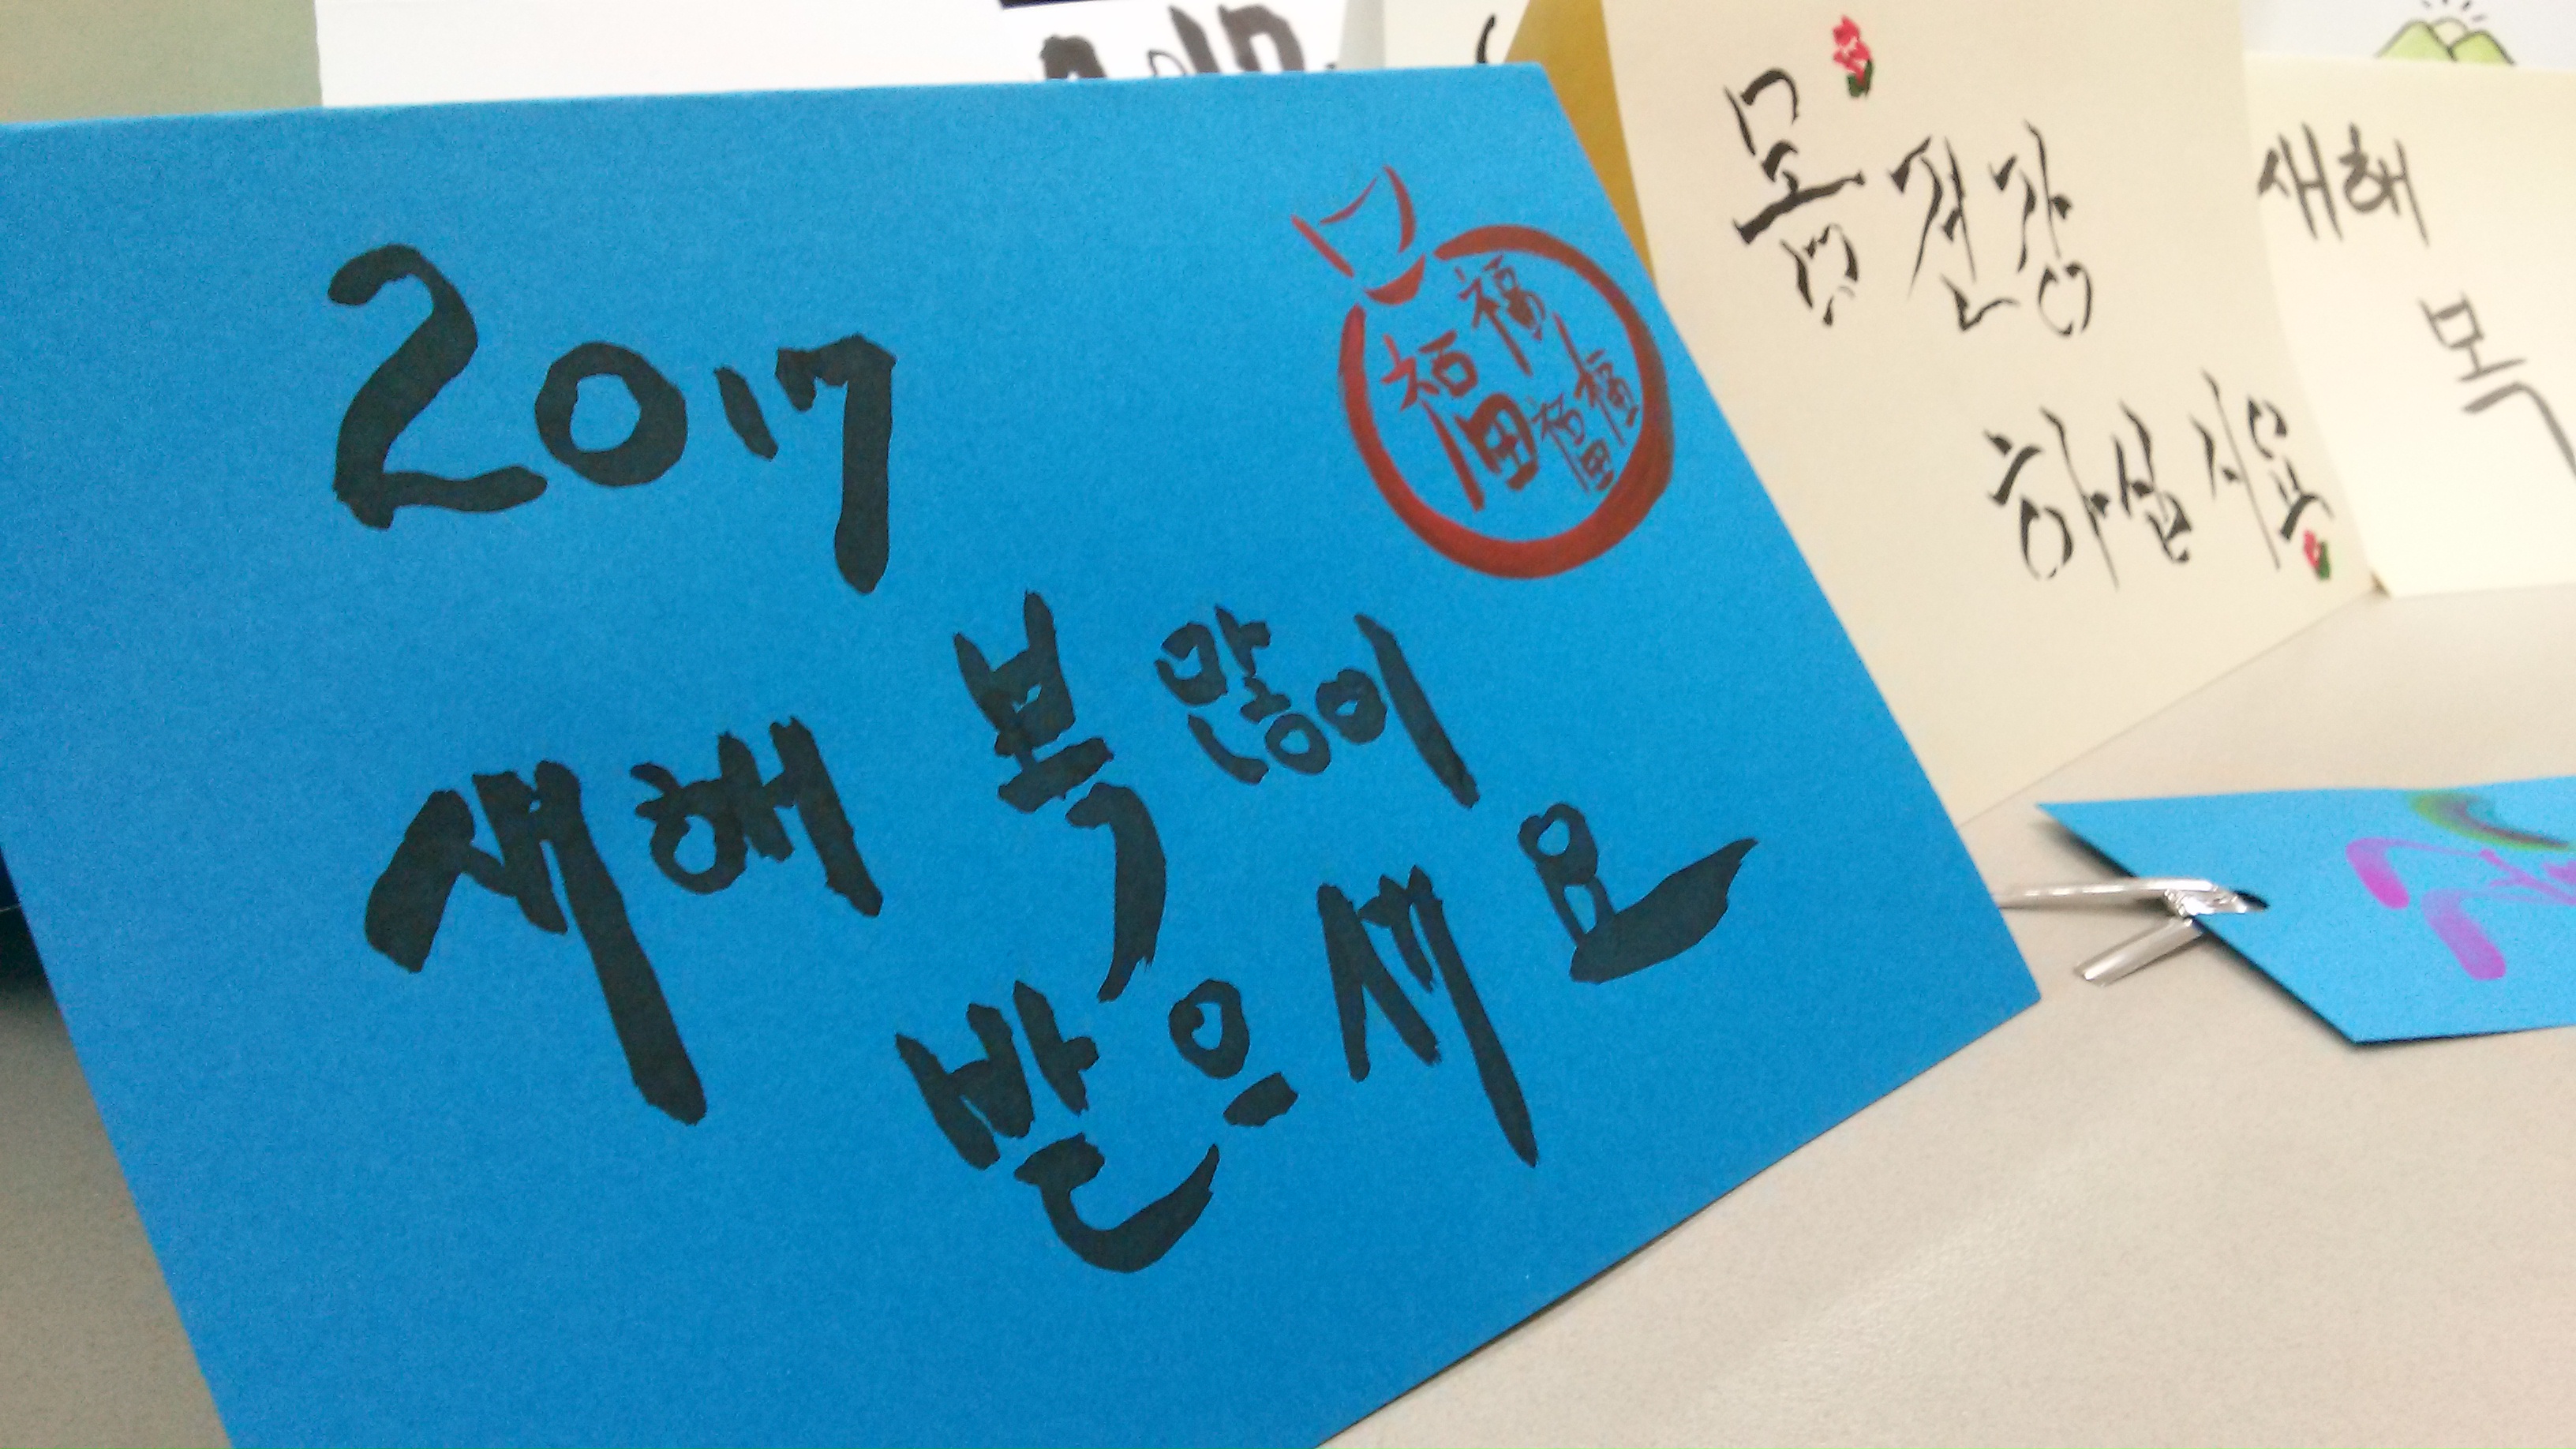 2017
새해 복 많이
받으세요
福 福
福 福
몸 건강
하십시요
새해
복